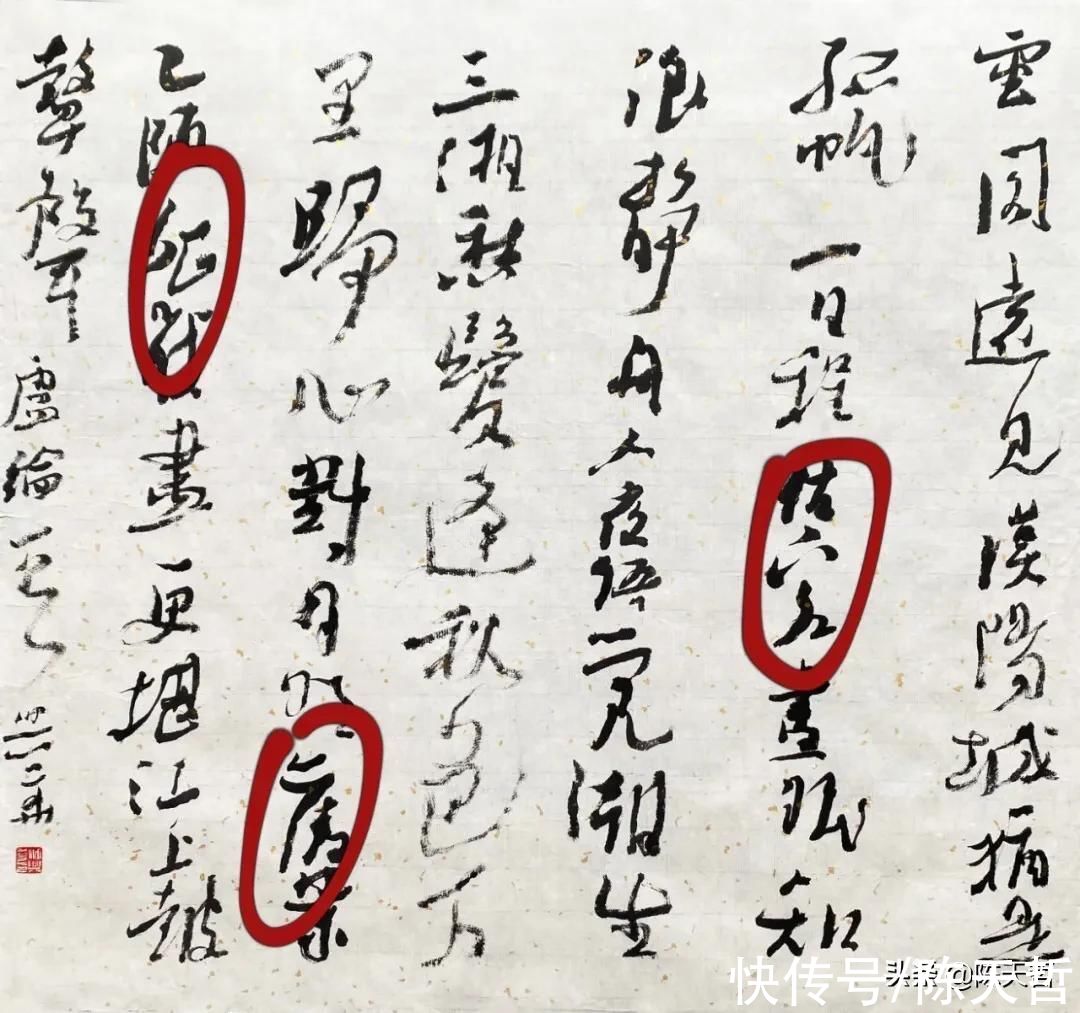 雲開遠見漢陽城猶是
孤帆一日程估客晝眠知
浪静舟人夜語覺潮生
三湘愁鬢逢秋色万
里歸心對月明舊業
已随征戰盡更堪江上鼓
鼙聲 盧綸
头条 @陈天哲
快传号/陈天哲